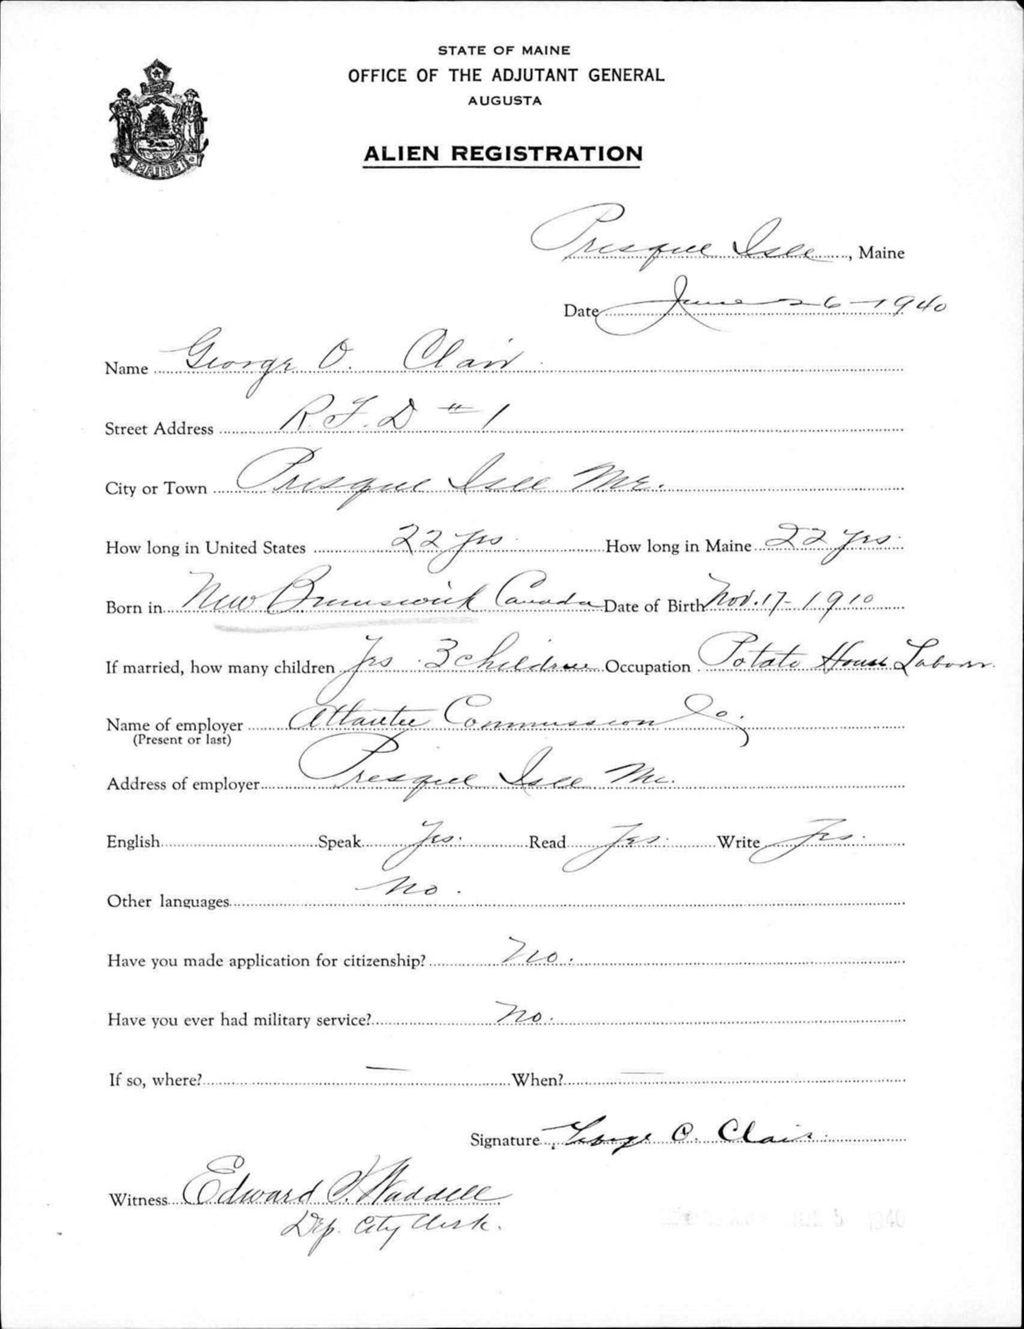 STATE OF MAINE
OFFICE OF THE ADJUTANT GENERAL
AUGUSTA
ALIEN REGISTRATION
MAINE
Presque Isle, Maine
Date June 26-1940
Name George O. Clair
Street Address R.F.D #1
City or Town Presque Isle Me.
How long in United States 22 yrs. How long in Maine 22 yrs.
Born in New Brunswick Canada Date of Birth Nov. 17-1910
If married, how many children Yes 3 children Occupation Potato House Laborer
Name of employer Atlantic Commission Co.
(Present or last)
Address of employer Presque Isle Me.
English Speak Yes. Read Yes. Write Yes.
Other languages No.
Have you made application for citizenship? No.
Have you ever had military service? No.
If so, where? — When? —
Signature George O. Clair
Witness Edward J. Waddell
Dep. City Clerk.
1940